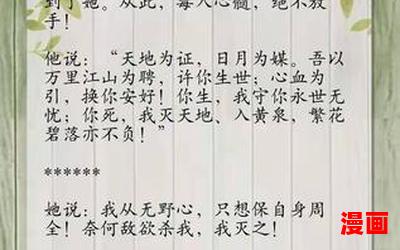 到了她。从此，毒入心髓，绝不放
手！
他说：“天地为证，日月为媒。吾以
万里江山为聘，许你生世；心血为
引，换你安好！你生，我守你永世无
忧；你死，我灭天地、入黄泉，繁花
碧落亦不负！”
******
她说：我从无野心，只想保自身周
全！奈何敌欲杀我，我灭之！
漫画